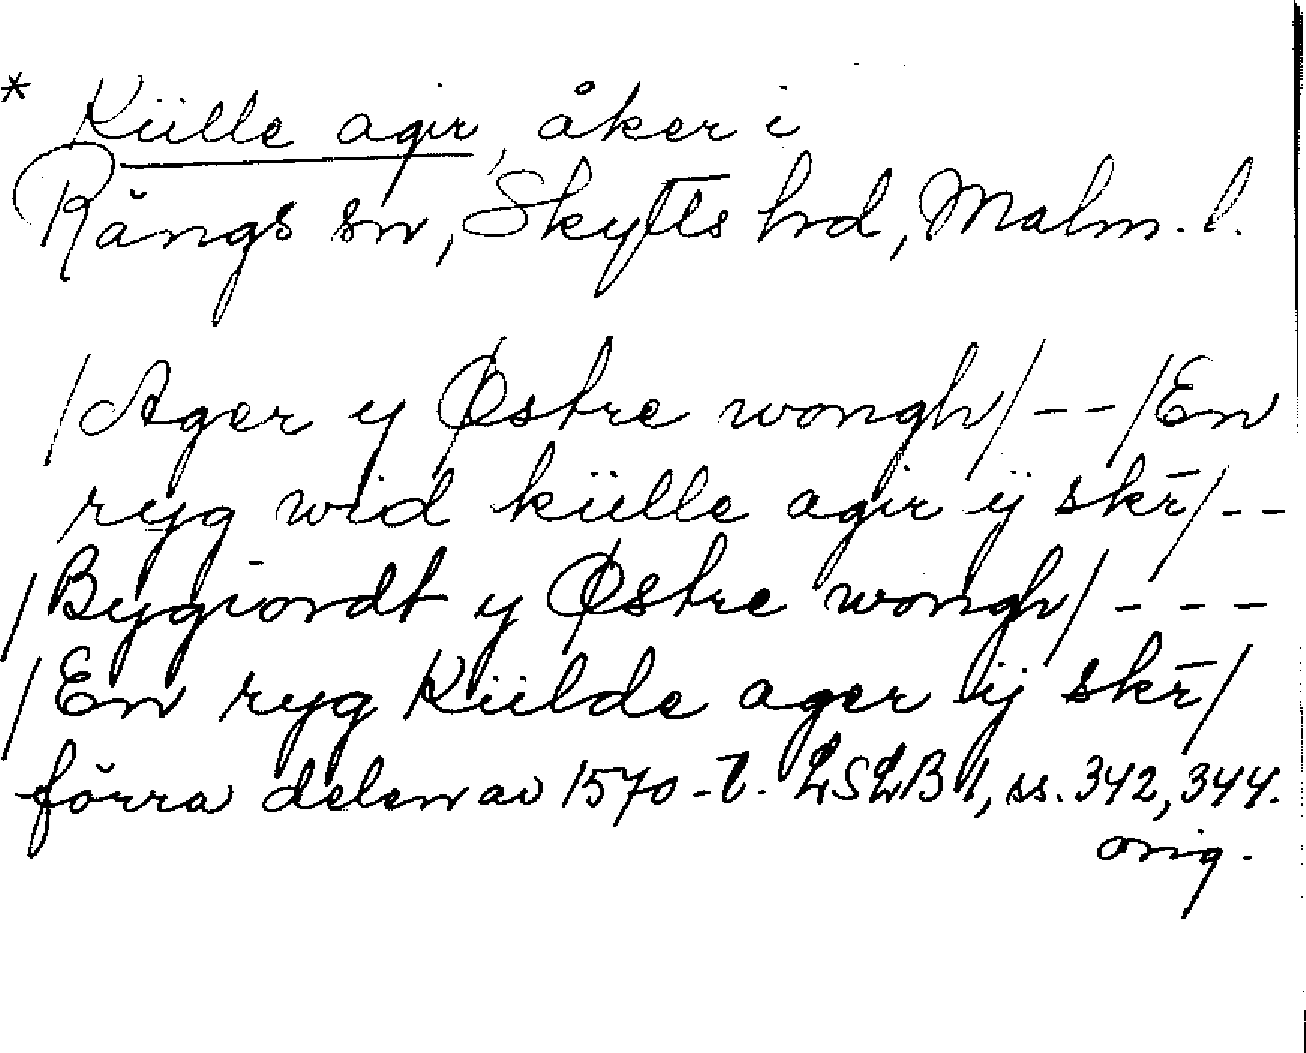 * Külle agir, åker i
Rängs sn, Skytts hd, Malm. l.
/Ager y Østre wongh/ -- /En
ryg wid külle agir ÿ skr̄/ --
/Bygiordt y Østre wongh/ ---
/En ryg Külde ager ÿ skr̄/
förra delen av 1570-t. LSLB 1, ss. 342, 344.
orig.